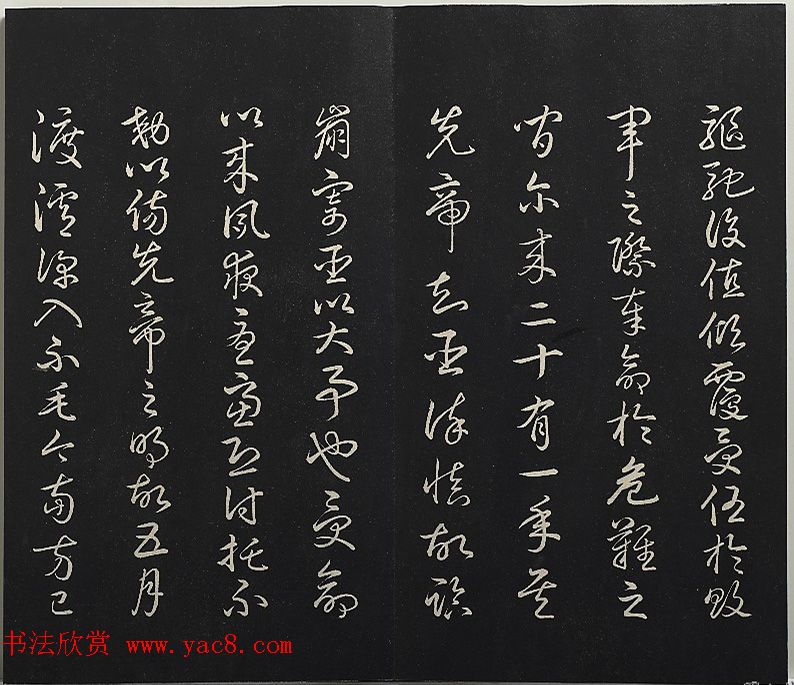 驅馳後值傾覆受任於敗
軍之際奉命於危難之
間尔來二十有一年矣
先帝知臣謹慎故臨
崩寄臣以大事也受命
以來夙夜憂慮恐付托不
効以傷先帝之明故五月
渡瀘深入不毛今南方已
书法欣赏 www.yac8.com